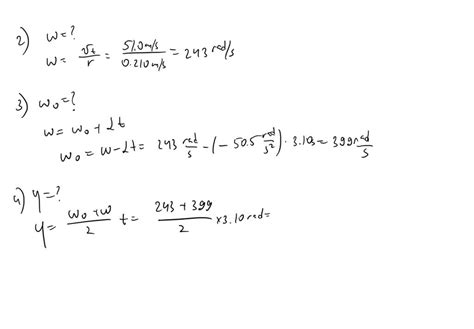 2) ω=?
ω = v_t/r = 51.0m/s / 0.210m/s = 243 rad/s
3) ω₀=?
ω = ω₀ + 2t
ω₀ = ω-2t = 243 rad/s - (-50.5 rad/s²) · 3.10s = 399 rad/s
4) y=?
y = ω₀+ω/2 t = 243+399/2 ×3.10 rad=